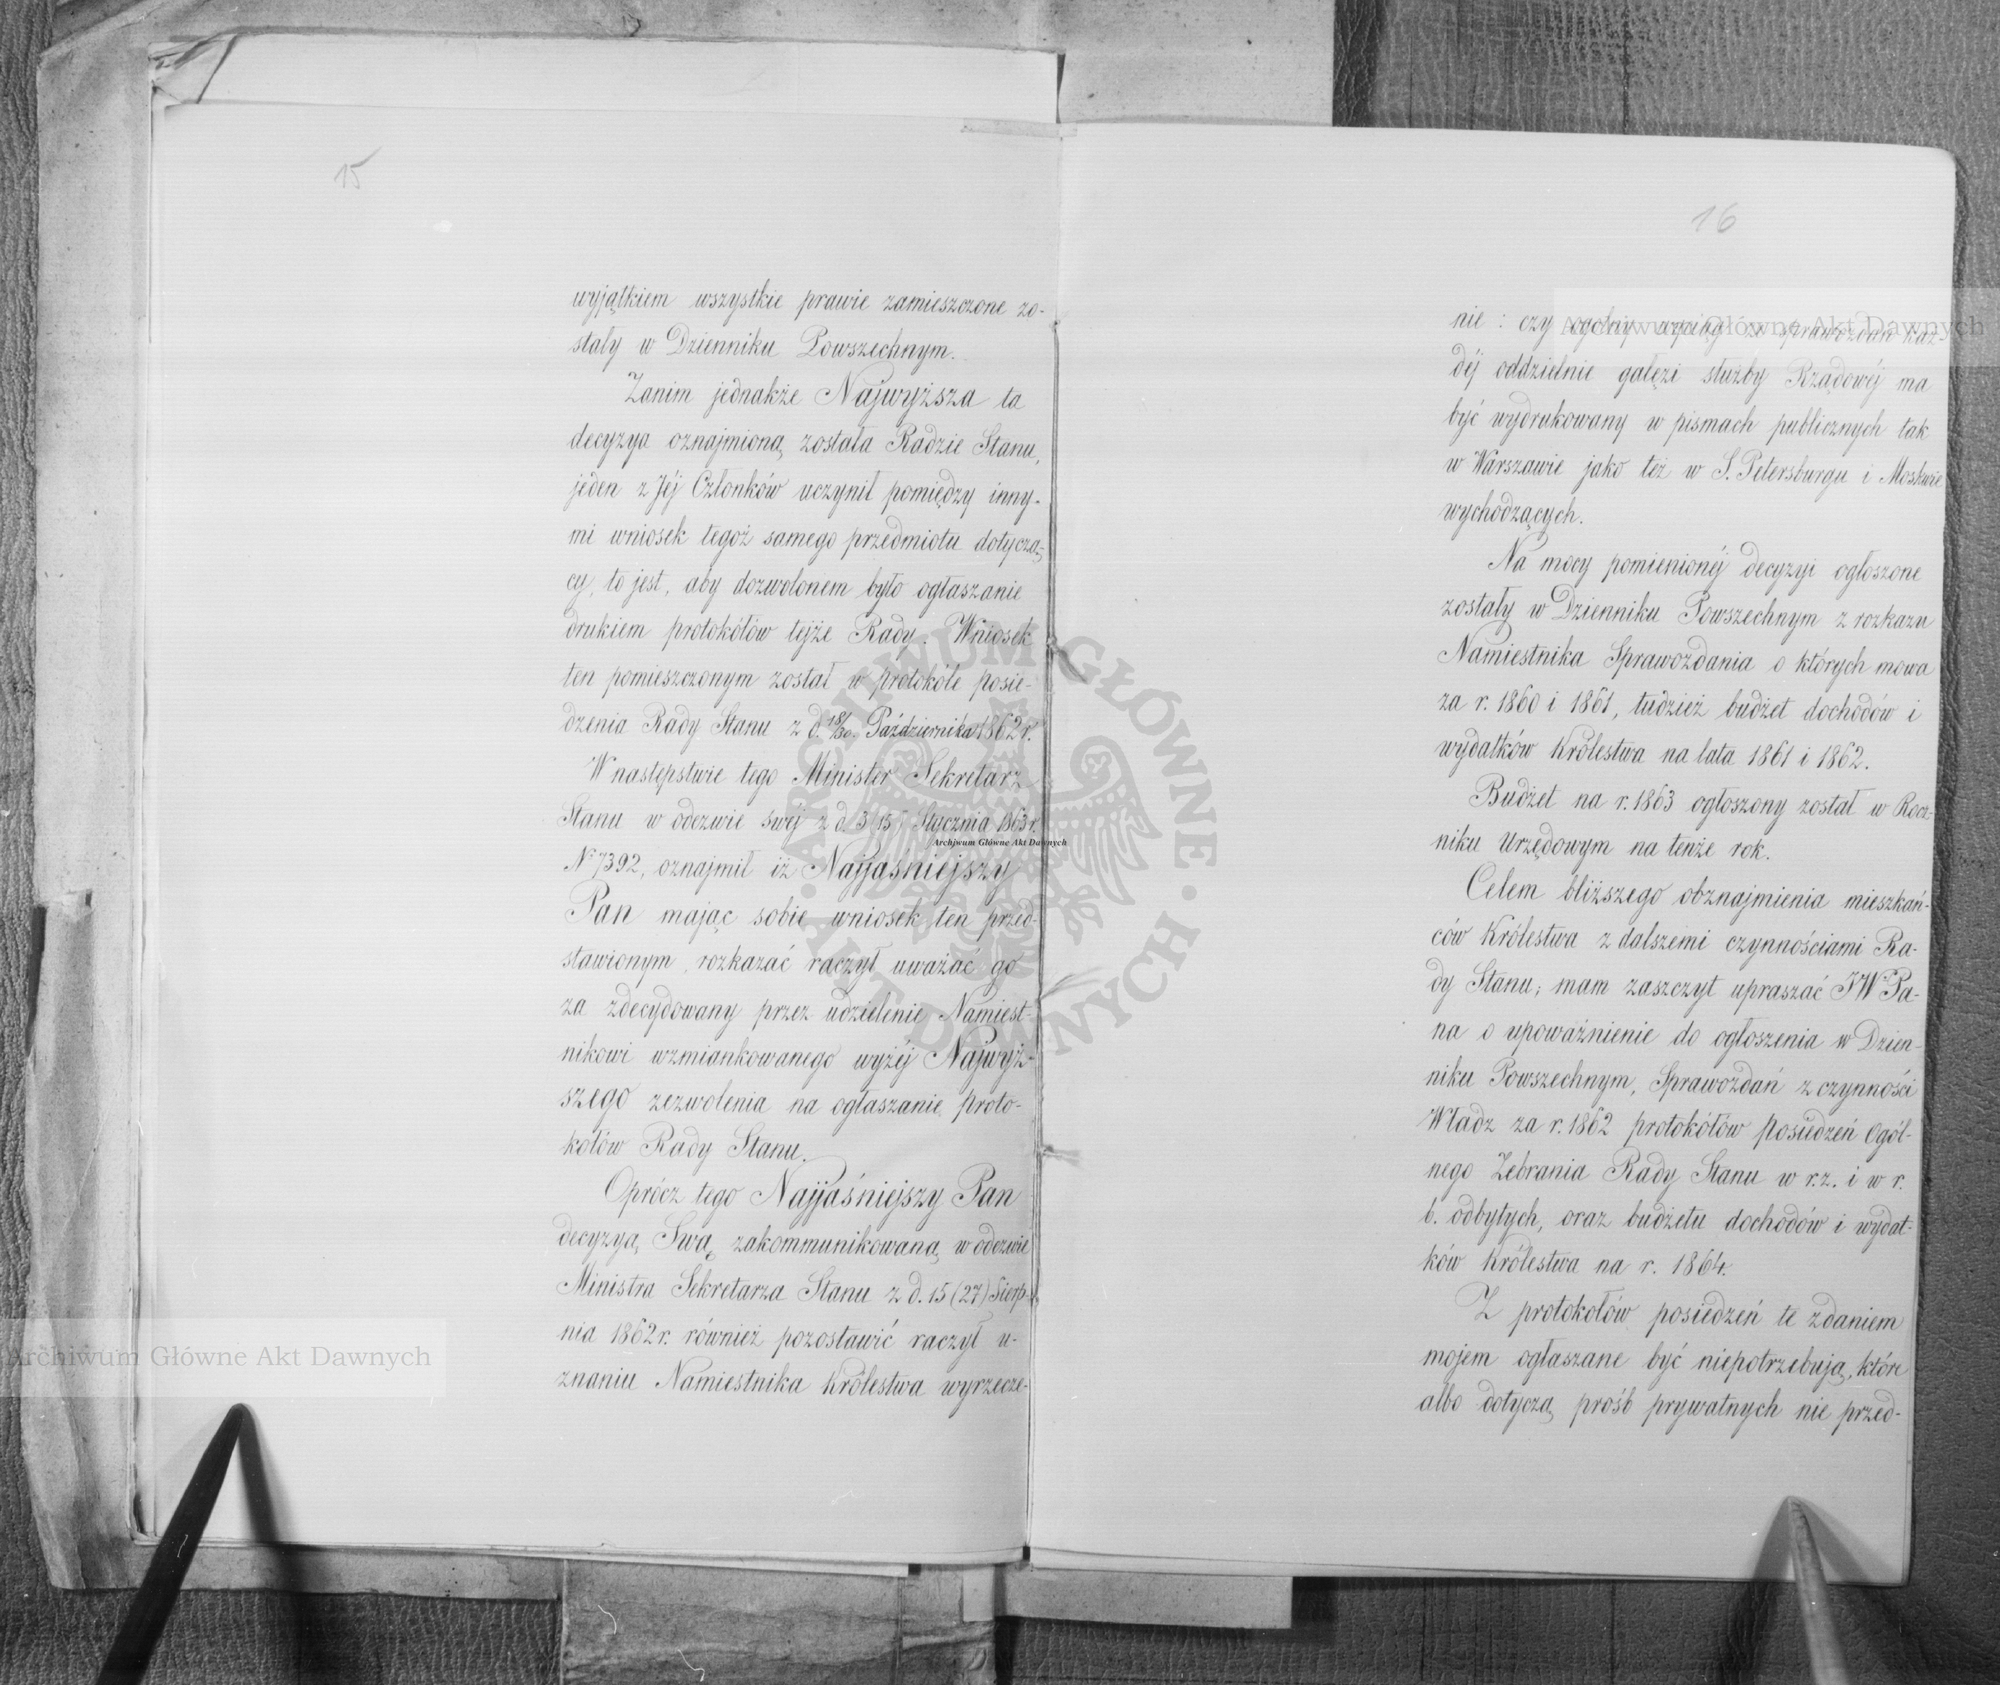 15
wyjątkiem wszystkie prawie zamieszczone zo-
stały w Dzienniku Powszechnym.
Zanim jednakże Najwyższa ta
decyzya oznajmioną została Radzie Stanu,
jeden z Jéj Członków uczynił pomiędzy inny-
mi wniosek tegoż samego przedmiotu dotyczą-
cy, to jest, aby dozwolonem było ogłaszanie
drukiem protokółów tejże Rady. Wniosek
ten pomieszczonym został w protokóle posie-
dzenia Rady Stanu z d. 18/30 Października 1862 r.
W następstwie tego Minister Sekretarz
Stanu w odezwie swéj z d. 3/15 Stycznia 1863 r.
Nr 7392, oznajmił iż Najjaśniejszy
Pan mając sobie wniosek ten przed-
stawionym, rozkazać raczył uważać go
za zdecydowany przez udzielenie Namiest-
nikowi wzmiankowanego wyżéj Najwyż-
szego zezwolenia na ogłaszanie proto-
kołów Rady Stanu.
Oprócz tego Najjaśniejszy Pan
decyzyą Swą zakommunikowaną w odezwie
Ministra Sekretarza Stanu z d. 15 (27) Sierp-
nia 1862 r. również pozostawić raczył u-
znaniu Namiestnika Królestwa wyrzecze-
16
nie : czy ogólny wyciąg ze sprawozdań każ-
déj oddzielnie gałęzi służby Rządowéj ma
być wydrukowany w pismach publicznych tak
w Warszawie jako też w S. Petersburgu i Moskwie
wychodzących.
Na mocy pomienionéj decyzyi ogłoszone
zostały w Dzienniku Powszechnym z rozkazu
Namiestnika Sprawozdania o których mowa
za r. 1860 i 1861, tudzież budżet dochodów i
wydatków Królestwa na lata 1861 i 1862.
Budżet na r. 1863 ogłoszony został w Rocz-
niku Urzędowym na tenże rok.
Celem bliższego obznajmienia mieszkań-
ców Królestwa z dalszemi czynnościami Ra-
dy Stanu; mam zaszczyt upraszać JW Pa-
na o upoważnienie do ogłoszenia w Dzien-
niku Powszechnym, Sprawozdań z czynności
Władz za r. 1862 protokółów posiedzeń Ogól-
nego Zebrania Rady Stanu w r. z. i w r.
b. odbytych, oraz budżetu dochodów i wydat-
ków Królestwa na r. 1864.
Z protokołów posiedzeń te zdaniem
mojem ogłaszane być niepotrzebują, które
albo dotyczą próśb prywatnych nie przed-
Archiwum Główne Akt Dawnych
Archiwum Główne Akt Dawnych
Archiwum Główne Akt Dawnych
ARCHIWUM GŁÓWNE · AKT DAWNYCH ·